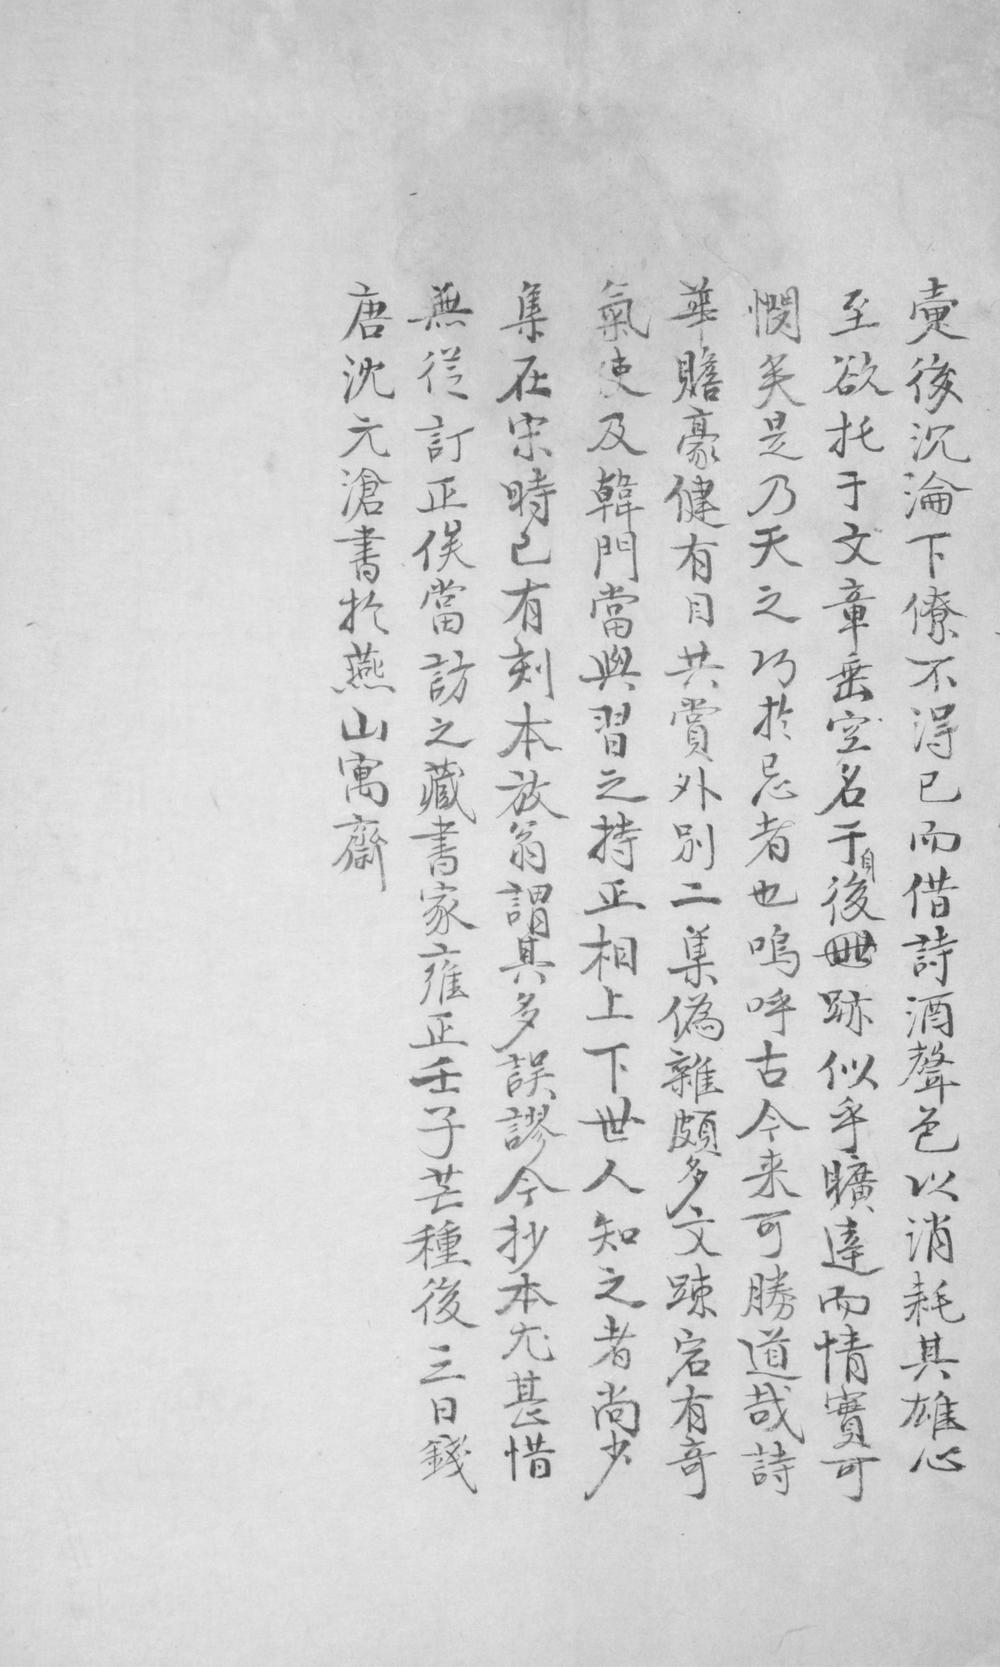 後沉淪下僚不得已而借詩酒聲色以消耗其雄心
至欲托于文章垂空名于身後跡似乎曠達而情實可
憫矣是乃天之巧於忌者也嗚呼古今来可勝道哉詩
華贍豪健有目共賞外別二集偽雜頗多文踈宕有奇
氣使及韓門當與習之持正相上下世人知之者尚少
集在宋時已有刻本放翁謂其多誤謬今抄本尤甚惜
無從訂正俟當訪之藏書家雍正壬子芒種後三日錢
唐沈元滄書於燕山寓齋